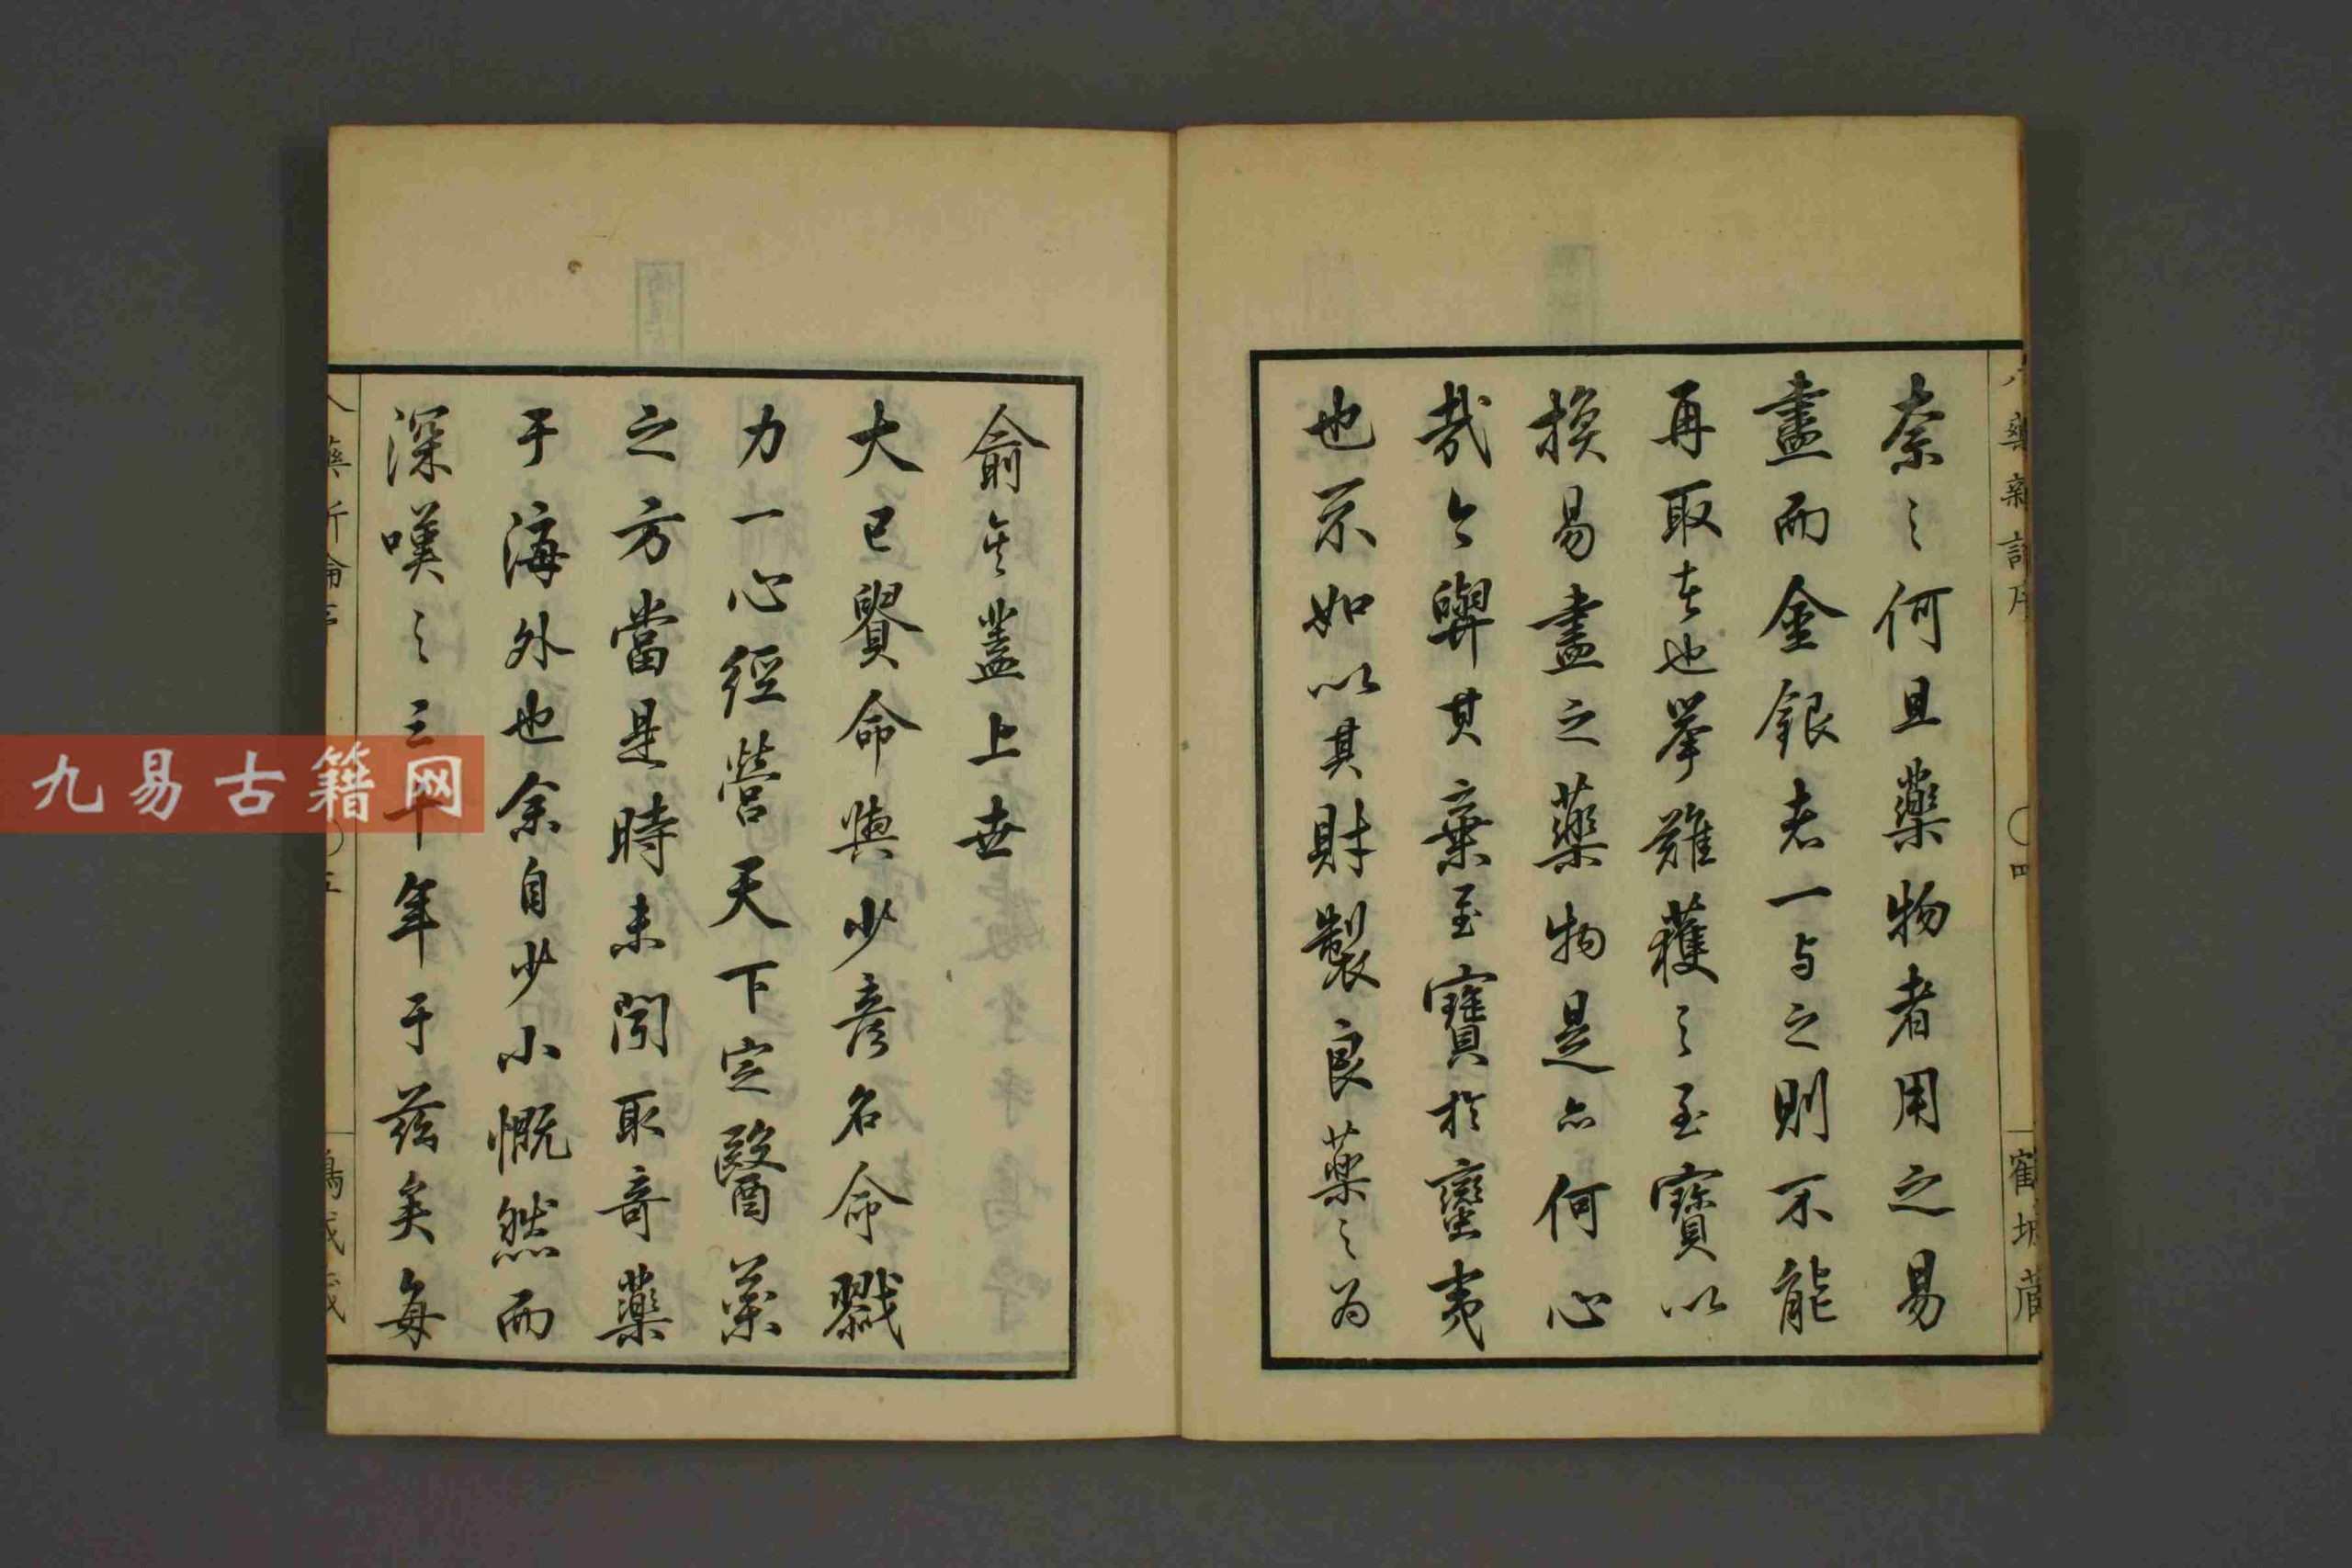 奈之何且藥物者用之易
盡而金銀者一与之則不能
再取者也挙難獲之至寶以
換易盡之藥物是亦何心
哉今舉其棄至寶於蠻夷
也不如以其財製良藥之為
愈矣蓋上世
大已貴命與少彥名命戮
力一心經營天下定醫藥
之方當是時未聞取奇藥
于海外也余自少小慨然而
深嘆之三十年于茲矣每
藥新論序
四
九易古籍网